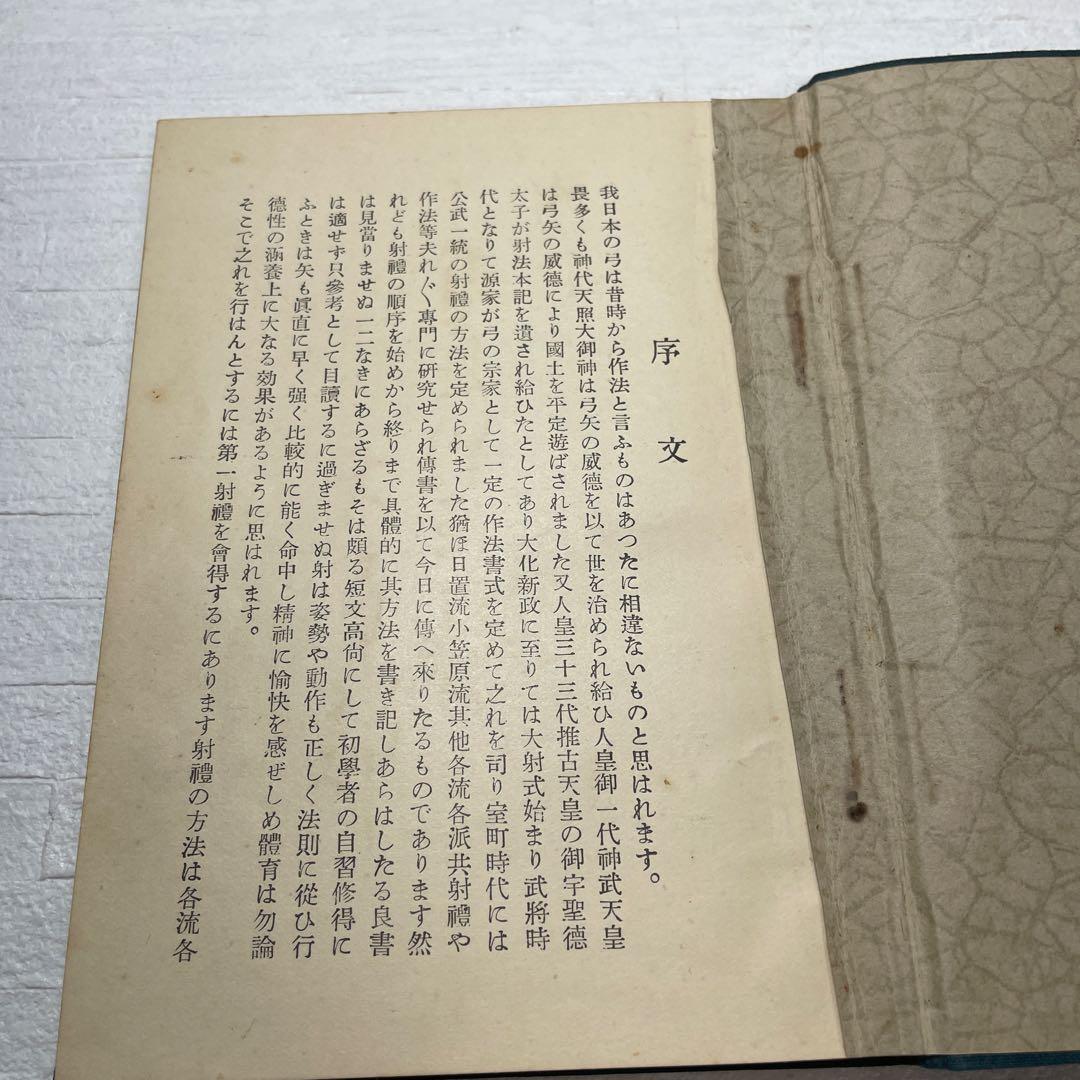 序文
我日本の弓は昔時から作法と言ふものはあつたに相違ないものと思はれます。
畏多くも神代天照大御神は弓矢の威德を以て世を治められ給ひ人皇御一代神武天皇
は弓矢の威德により國土を平定遊ばされました又人皇三十三代推古天皇の御宇聖德
太子が射法本記を遺され給ひたとしてあり大化新政に至りては大射式始まり武將時
代となりて源家が弓の宗家として一定の作法書式を定めて之れを司り室町時代には
公武一統の射禮の方法を定められました猶ほ日置流小笠原流其他各流各派共射禮や
作法等夫れ〴〵專門に硏究せられ傳書を以て今日に傳へ來りたるものであります然
れども射禮の順序を始めから終りまで具體的に其方法を書き記しあらはしたる良書
は見當りませぬ一二なきにあらざるもそは頗る短文高尙にして初學者の自習修得に
は適せず只參考として目讀するに過ぎませぬ射は姿勢や動作も正しく法則に從ひ行
ふときは矢も眞直に早く强く比較的に能く命中し精神に愉快を感ぜしめ體育は勿論
德性の涵養上に大なる効果があるように思はれます。
そこで之れを行はんとするには第一射禮を會得するにあります射禮の方法は各流各